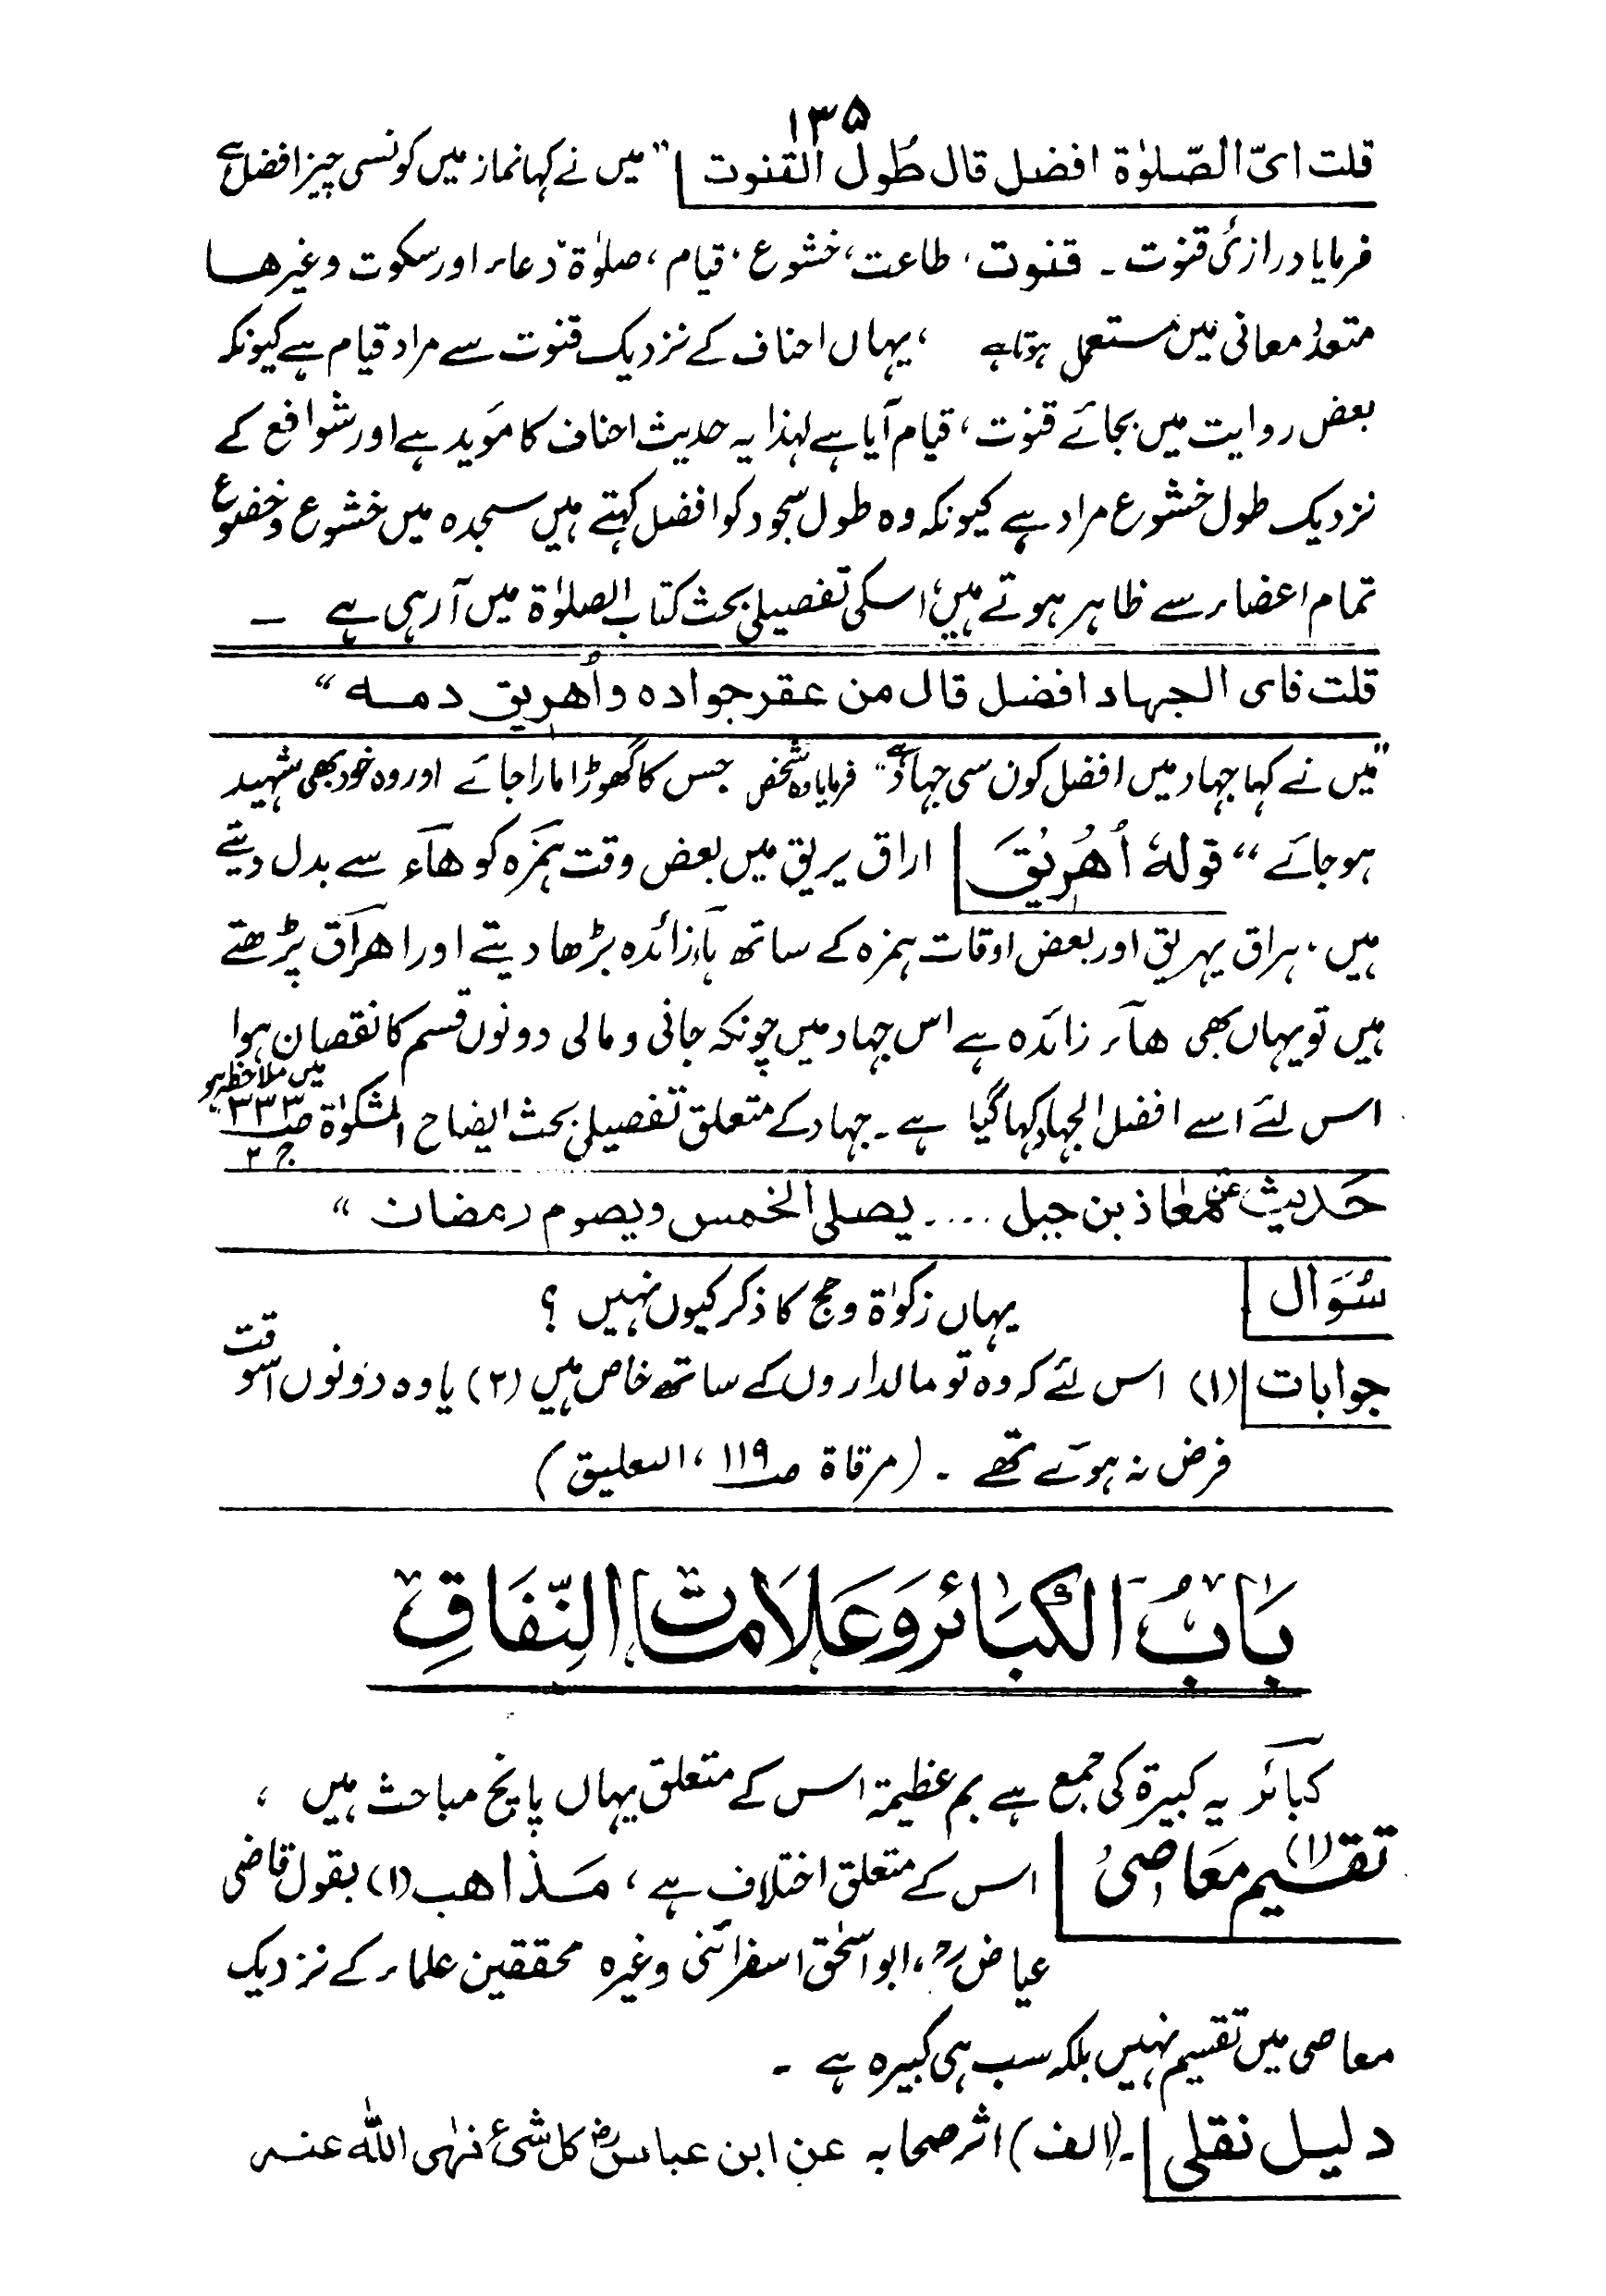 ۱۳۵
قلت ایّ الصّلوٰة افضل قال طُول القنوت "میں نے کہا نماز میں کونسی چیز افضل ہے
فرمایا درازئ قنوت ۔ قنوت، طاعت، خشوع، قیام، صلوٰة، دعاء اور سکوت وغیرھا
متعدد معانی میں مستعمل ہوتا ہے ، یہاں احناف کے نزدیک قنوت سے مراد قیام ہے کیونکہ
بعض روایت میں بجائے قنوت، قیام آیا ہے لہذا یہ حدیث احناف کا مؤید ہے اور شوافع کے
نزدیک طول خشوع مراد ہے کیونکہ وہ طول سجود کو افضل کہتے ہیں سجدہ میں خشوع و خضوع
تمام اعضاء سے ظاہر ہوتے ہیں، اسکی تفصیلی بحث کتاب الصلوٰة میں آرہی ہے ۔
قلت فای الجهاد افضل قال من عقر جواده واُهريق دمه "
"میں نے کہا جہاد میں افضل کون سی جہاد ہے" فرمایا وہ شخص جس کا گھوڑا مارا جائے اور وہ خود بھی شہید
ہو جائے " قولهٗ اُهُرِيْقَ اراق یریق میں بعض وقت ہمزہ کو هاء سے بدل دیتے
ہیں، ہراق یہریق اور بعض اوقات ہمزہ کے ساتھ ہاء زائدہ بڑھا دیتے اور اهراق پڑھتے
ہیں تو یہاں بھی هاء زائدہ ہے اس جہاد میں چونکہ جانی و مالی دونوں قسم کا نقصان ہوا
اس لئے اسے افضل الجہاد کہا گیا ہے ۔ جہاد کے متعلق تفصیلی بحث ایضاح المشکوٰة صـ۳۳۳ ج۲ میں ملاحظہ ہو
حَديث عن مُّعاذ بن جبل .... يصلى الخمس ويصوم رمضان "
سُوَال یہاں زکوٰة و حج کا ذکر کیوں نہیں ؟
جوابات (۱) اس لئے کہ وہ تو مالداروں کے ساتھ خاص ہیں (۲) یا وہ دونوں اسوقت
فرض نہ ہوئے تھے ۔ (مرقاة صـ۱۱۹، التعليق)
بَابُ الْكَبَائر وَعَلَامَات النِّفَاقِ
کبائر یہ کبیرة کی جمع ہے بم عظیمة اس کے متعلق یہاں پانچ مباحث ہیں ،
(۱) تقسیم معاصی اس کے متعلق اختلاف ہے ، مَذاهب (۱) بقول قاضی
عیاضؒ، ابو اسحٰق اسفرائنی وغیرہ محققین علماء کے نزدیک
معاصی میں تقسیم نہیں بلکہ سب ہی کبیرہ ہے ۔
دلیل نقلی ۔ (الف) اثر صحابہ عن ابن عباسؓ کل شیٔ نہی اللّٰہ عنہ